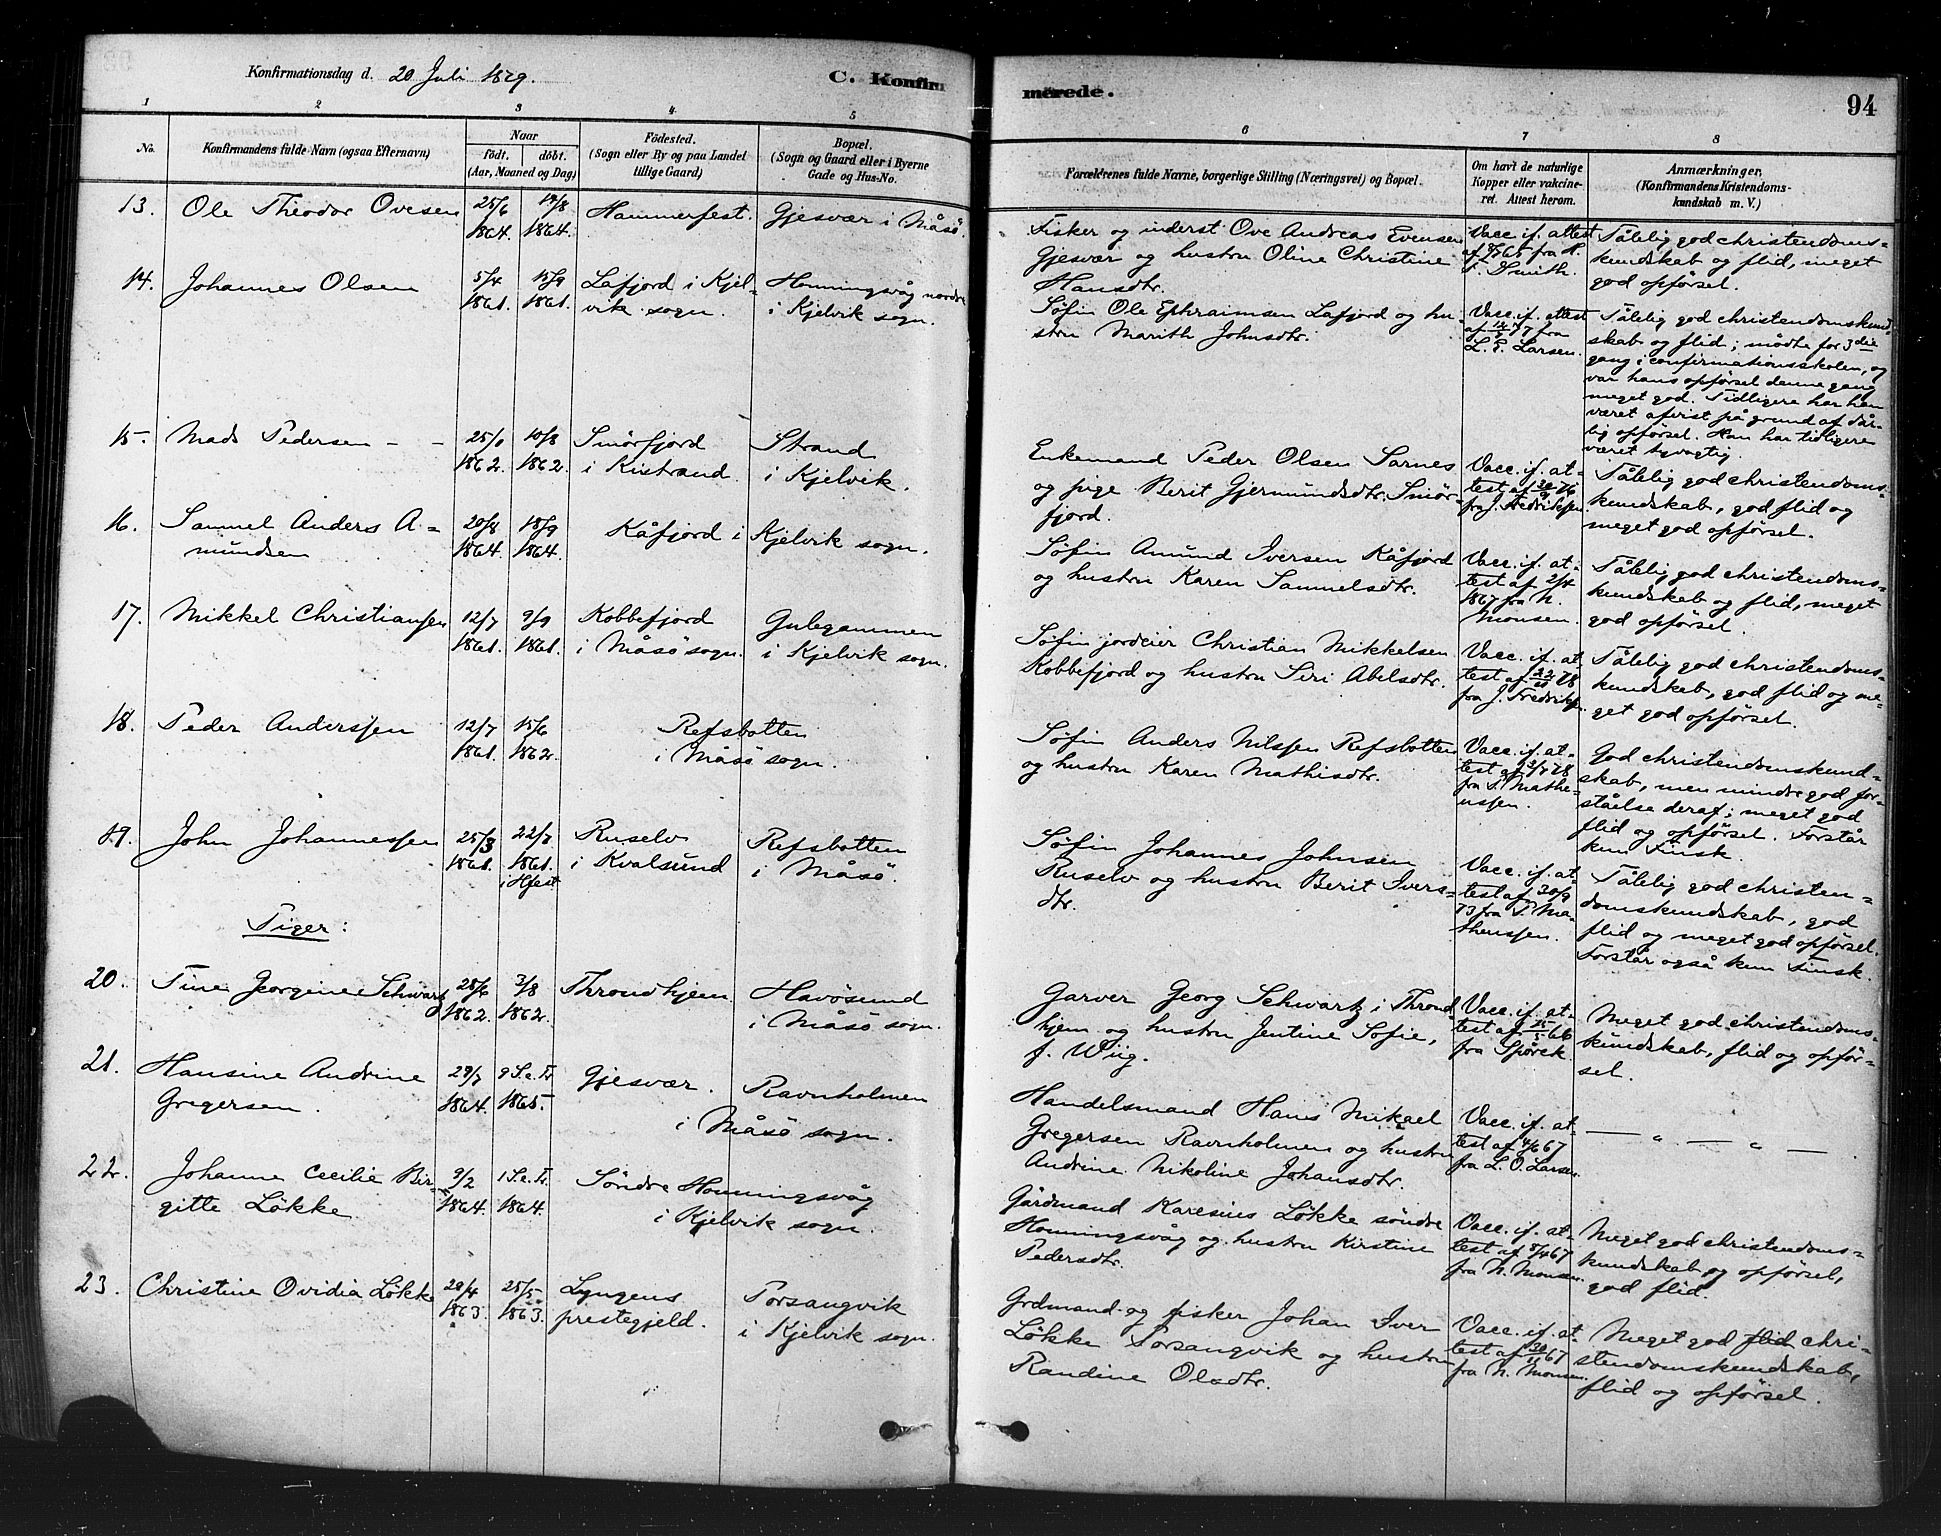 Konfirmationsdag d. 20 Juli 1879.
C. Konfirmerede.
94
1 2 3 4 5 6 7 8
No.
Konfirmandens fulde Navn (ogsaa Efternavn)
Naar
födt. döbt.
(Aar, Maaned og Dag)
Födested.
(Sogn eller By og paa Landet
tillige Gaard)
Bopæl.
(Sogn og Gaard eller i Byerne
Gade og Hus-No.
Forældrenes fulde Navne, borgerlige Stilling (Næringsvei) og Bopæl.
Om havt de naturlige
Kopper eller vakcine-
ret. Attest herom.
Anmærkninger,
(Konfirmandens Kristendoms-
kundskab m. V.)
13. Ole Theodor Ovesen
25/6 1864.
14/8 1864.
Hammerfest.
Gjesvær i Måsö.
Fisker og inderst Ove Andreas Evensen
Gjesvær og hustru Oline Christine
Hansdtr.
Vacc. if. attest
fra H.
Smith.
Tålelig god christendoms-
kundskab og flid, meget
god opförsel.
14. Johannes Olsen
5/4 1861.
15/9 1861.
Lafjord i Kjel-
vik sogn.
Honningsvåg nordre
i Kjelvik sogn.
Søfin Ole Ephraimsen Lafjord og hu-
stru Marith Johnsdtr.
Vacc. if. attest
fra
L. E. Larsen.
Tålelig god christendomskund-
skab og flid; mödte for 3die
gang i confirmationsskolen, og
var hans opförsel denne gang
meget god. Tidligere har han
været afvist på grund af dår-
lig opförsel. Han har tidligere
været tyvagtig.
15. Mads Pedersen - -
1862.
10/8 1862.
Smörfjord
i Kistrand.
Strand
i Kjelvik.
Enkemand Peder Olsen Sarnes
og pige Berit Gjermundsdtr. Smör-
fjord.
Vacc. if. at-
test af
fra J. Fredriksen.
Tålelig god christendoms-
kundskab, god flid og
meget god opförsel.
16. Samuel Anders A-
mundsen
20/8 1864.
18/9 1864.
Kåfjord i
Kjelvik sogn.
Søfin Amund Iversen Kåfjord
og hustru Karen Samuelsdtr.
Vacc. if. at-
test af 2/4
1867 fra N.
Monsen.
Tålelig god christendoms-
kundskab og flid, meget
god opförsel.
17. Mikkel Christiansen
12/7 1861.
9/9 1861.
Kobbefjord
i Måsö sogn.
Gulegammen
i Kjelvik sogn.
Søfin jordeier Christian Mikkelsen
Kobbefjord og hustru Siri Abelsdtr.
Vacc. if. at-
test af 22/10 78
fra J. Fredriksen.
Tålelig god christendoms-
kundskab, god flid og me-
get god opförsel.
18. Peder Anderssen
12/7 1861.
15/6 1862.
Refsbotten
i Måsö sogn.
Søfin Anders Nilssen Refsbotten
og hustru Karen Mathisdtr.
Vacc. if. at-
test af 3/7 78
fra P. Mathe-
ussen.
God christendomskund-
skab, men mindre god for-
ståelse deraf; meget god
flid og opförsel. Forstår
kun Finsk.
19. John Johannessen
25/3 1861.
1861.
i Hfest
Ruselv
i Kvalsund
Refsbotten
i Måsö.
Søfin Johannes Johnsen
Ruselv og hustru Berit Ivers-
dtr.
Vacc. if. at-
test af 30/9
73 fra P. Ma-
theussen.
Tålelig god christen-
domskundskab, god
flid og meget god opförsel.
Forstår også kun Finsk.
Piger:
20. Tine Georgine Schwartz
28/6 1862.
3/8 1862.
Throndhjem
Havösund
i Måsö sogn.
Garver Georg Schwartz i Thrond-
hjem og hustru Jentine Sofie,
f. Wiig.
Vacc. if. at-
test af 66
fra Spörck.
Meget god christendoms-
kundskab, flid og opför-
sel.
21. Hansine Andrine
Gregersen.
29/7 1864.
9 S. e. Tr. 1865.
Gjesvær.
Ravnholmen
i Måsö sogn.
Handelsmand Hans Mikael
Gregersen Ravnholmen og hustru
Andrine Nikoline Johansdtr.
Vacc. if. at-
test af 4/6 67
fra L. O. Larsen.
— „ — „ —
22. Johanne Cecilie Bir-
gitte Lökke
9/2 1864.
1 S. e. Tr. 1864.
Söndre Honningsvåg
i Kjelvik sogn.
Gårdmand Karesius Lökke söndre
Honningsvåg og hustru Kirstine
Pedersdtr.
Vacc. if. at-
test af 67
fra N. Monsen.
Meget god christendoms-
kundskab og opförsel,
god flid.
23. Christine Ovidia Lökke
29/4 1863.
25/5 1863.
Lyngens
prestegjeld.
Porsangvik
i Kjelvik sogn.
Grdmand og fisker Johan Iver
Lökke Porsangvik og hustru
Randine Olsdtr.
Vacc. if. at-
test af 67
fra N. Monsen.
Meget god flid chri-
stendomskundskab,
flid og opförsel.